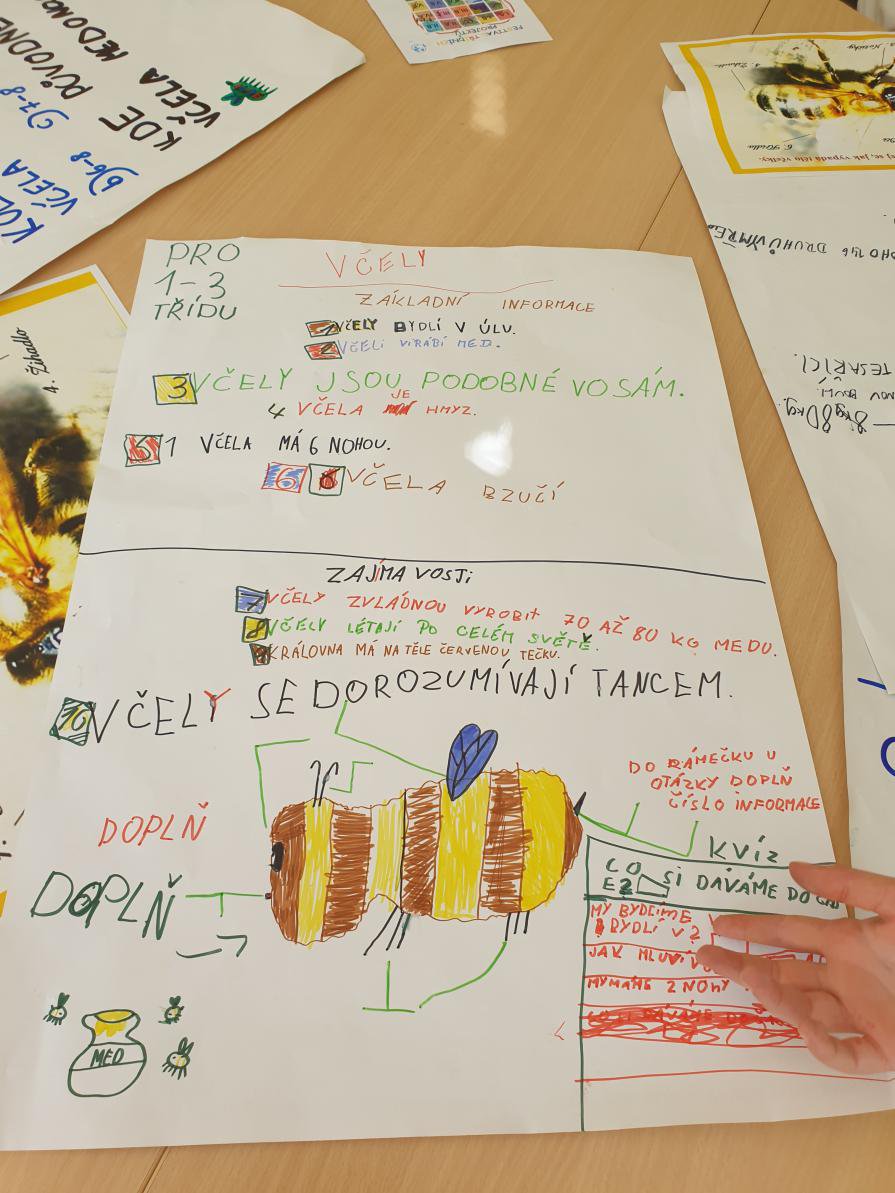 PRO
1-3
TŘÍDU
VČELY
ZÁKLADNÍ INFORMACE
1 VČELY BYDLÍ V ÚLU.
2 VČELI VIRÁBÍ MED.
3 VČELY JSOU PODOBNÉ VOSÁM.
4 VČELA JE HMYZ.
5 1 VČELA MÁ 6 NOHOU.
6 VČELA BZUČÍ
ZAJÍMAVOSTI
7 VČELY ZVLÁDNOU VYROBIT 70 AŽ 80 KG MEDU.
8 VČELY LÉTAJÍ PO CELÉM SVĚTĚ.
KRÁLOVNA MÁ NA TĚLE ČERVENOU TEČKU.
10 VČELY SE DOROZUMÍVAJÍ TANCEM.
DO RÁMEČKU U
OTÁZKY DOPLŇ
ČÍSLO INFORMACE
DOPLŇ
DOPLŇ
KVÍZ
CO SI DÁVÁME DO
MY BYDLÍME V
BYDLÍ V?
JAK MLUVÍ
MYMÁME 2 NOHY
MED
KDE
VČELA
6)6-8
KDE PŮVODNĚ
VČELA MEDONO
7)7-8
4. Žihadlo
FESTIVAL TŘÍDNÍCH
PROJEKTŮ
jak vypadá tělo včelky.
DRUHŮ VYMŘE
TESAŘÍCI.